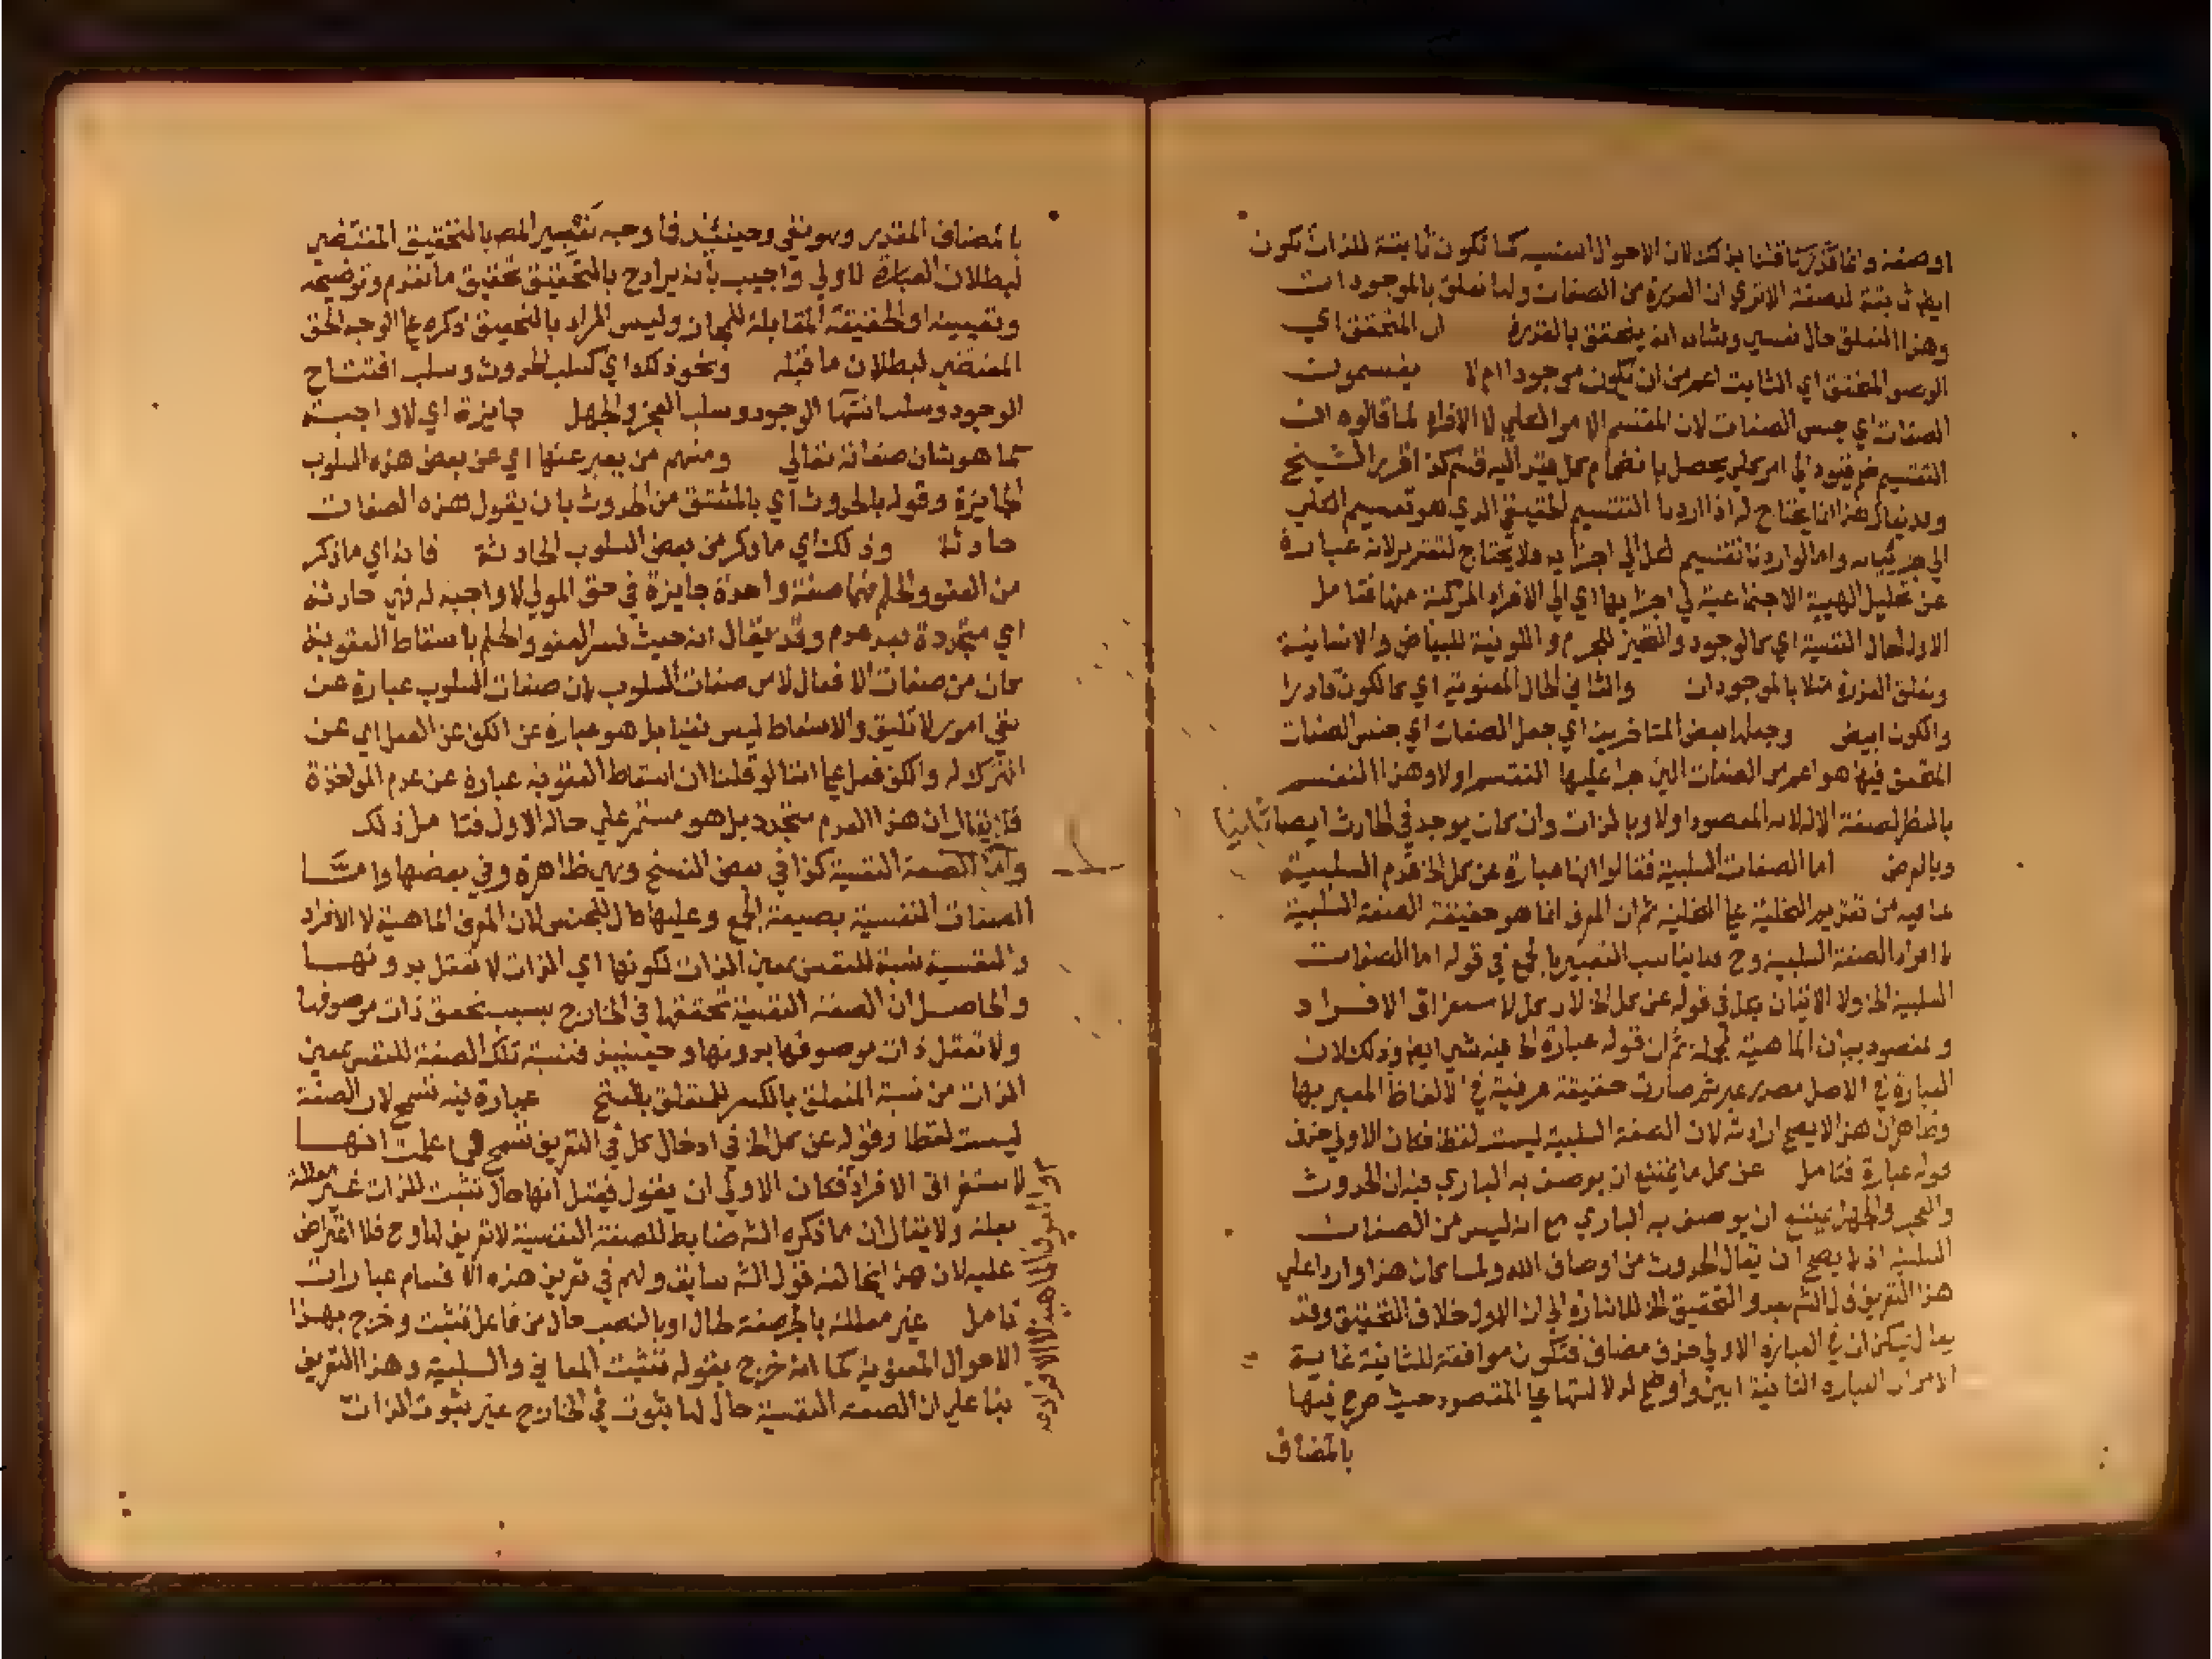 او صفة وانما قدرنا قلنا بذلك لان الاحوال النفسية كما تكون ثابتة للذات تكون
ايضا ثابتة لصفة الا تري ان القدرة من الصفات ولها تعلق بالموجودات
وهذا التعلق حال نفسي وشانه انه يتحقق بالقدرة المتحقق اي
الوصف المتحقق اي الثابت اعم من ان يكون موجودا ام لا يقسمون
الصفات اي جنس الصفات لان المنقسم الامر الكلي لا الافراد لما قالوه ان
التقسيم ضم قيود الي امر كلي يحصل بانضمام كل قيد اليه قسم كذا قرر الشيخ
وقد يقال هذا انما يحتاج له اذا اردنا التقسيم الحقيقي الذي هو تقسيم الكلي
الي جزئياته واما لو اردنا تقسيم الكل الي اجزايه فلا يحتاج لتقدير لانه عبارة
عن تحليل الهيية الاجتماعية الي اجزايها اي الي الافراد المركبة منها فتامل
الاول الحال النفسية اي كالوجود والتحيز للجرم واللونية للبياض والانسانية
وتعلق القدرة مثلا بالموجودات والثاني الحال المعنوية اي كالكون قادرا
والكون ابيض وجعلها بعض المتاخرين اي جعل الصفات اي جنس الصفات
المتحقق فيها هو اعم من الصفات التي جرا عليها التقسيم اولا وهذا التقسيم
بالنظر لصفة الاله لانه المقصود اولا وبالذات وان كان يوجد في الحادث ايضا ثانيا
وبالعرض اما الصفات السلبية فقالوا انها عبارة عن كل الخ قدم السلبية
لما فيه من تقديم التخلية علي التحلية ثم ان المعرف انما هو حقيقة الصفة السلبية
لا افراد الصفة السلبية وح فلا يناسب التعبير بالجمع في قوله اما الصفات
السلبية الخ ولا الاتيان بكل في قوله عن كل الخ لان كل لاستغراق الافراد
والمقصود بيان الماهية ثم ان قوله عبارة الخ فيه شي ايضا وذلك لان
العبارة في الاصل مصدر عبر ثم صارت حقيقة عرفية في الالفاظ المعبر بها
وظاهر ان هذا لا يصح ارادته لان الصفة السلبية ليست لفظا فكان الاولي حذف
قوله عبارة فتامل عن كل ما يمتنع ان يوصف به الباري فيه ان الحدوث
والعجز والجهل يمتنع ان يوصف به الباري مع انه ليس من الصفات
السلبية اذ لا يصح ان يقال الحدوث من اوصاف الله ولما كان هذا واردا علي
هذا التعريف قال الشم بعد والتحقيق الخ للاشارة الي ان الاول خلاف التحقيق وقد
يقال يمكن ان في العبارة الاولي حذف مضاف فتكون موافقة للثانية غاية
الامر ان العبارة الثانية ابين واوضح لدلالتها علي المقصود حيث صرح فيها
بالمضاف
بالمضاف المقدر وهو نفي وحينئذ فما وجه تعبير المص بالتحقيق المقتضي
لبطلان العبارة الاولي واجيب بان مراده بالتحقيق تحقيق ما تقدم وتوضيحه
وتبيينه او الحقيقة المقابلة للمجاز وليس المراد بالتحقيق ذكره علي الوجه الحق
المقتضي لبطلان ما قبله ونحو ذلك اي كسلب الحدوث وسلب افتتاح
الوجود وسلب انتها الوجود وسلب العجز والجهل جايزة اي لا واجبة
كما هو شان صفاته تعالي ومنهم من يعبر عنها اي عن بعض هذه السلوب
الجايزة وقوله بالحدوث اي بالمشتق من الحدوث بان يقول هذه الصفات
حادثة وذلك اي ما ذكر من بعض السلوب الحادثة فانه اي ما ذكر
من العفو والحلم فهما صفة واحدة جايزة في حق المولي لا واجبه له فهي حادثة
اي متجددة بعد عدم وقد يقال انه حيث فسر العفو والحلم باسقاط العقوبة
كان من صفات الافعال لا من صفات السلوب لان صفات السلوب عبارة عن
نفي امور لا تليق والاسقاط ليس نفيا بل هو عبارة عن الكف عن الفعل اي عن
الترك له والكف فعل علي اننا لو قلنا ان اسقاط العقوبه عبارة عن عدم المواخذة
فلا يقال ان هذا العدم متجدد بل هو مستمر علي حاله الاول فتامل ذلك
واما الصفة النفسية كذا في بعض النسخ وهي ظاهرة وفي بعضها واما
الصفات النفسية بصيغة الجمع وعليها فال للجنس لان المعرف الماهية لا الافراد
والنفسية نسبة للنفس بمعني الذات لكونها اي الذات لا تعقل بدونها
والحاصل ان الصفة النفسية تحققها في الخارج بسبب تحقق ذات موصوفها
ولا تعقل ذات موصوفها بدونها وحينيذ فنسبة تلك الصفة للنفس بمعني
الذات من نسبة المتعلق بالكسر للمتعلق بالفتح عبارة فيه تسمح لان الصفة
ليست لفظا وقوله عن كل الخ في ادخال كل في التعريف تسمح لما علمت انها
لاستغراق الافراد فكان الاولي ان يقول فيقل انها حال تثبت للذات غير معللة
بعلة ولا يقال ان ما ذكره الشم ضابط للصفة النفسية لا تعريف لها وح فلا اعتراض
عليه لان هذا يخالفه قول الشم سابق ولهم في تعريف هذه الاقسام عبارات
تامل غير معللة بالجر صفة لحال او بالنصب حال من فاعل تثبت وخرج بهذا
الاحوال المعنوية كما انه خرج بقوله تثبت المعاني والسلبية وهذا التعريف
بنا علي ان الصفة النفسية حال لها ثبوت في الخارج غير ثبوت الذات